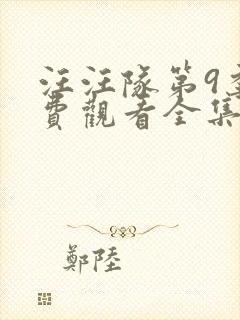 汪汪隊第9
費觀看全集
鄭陸